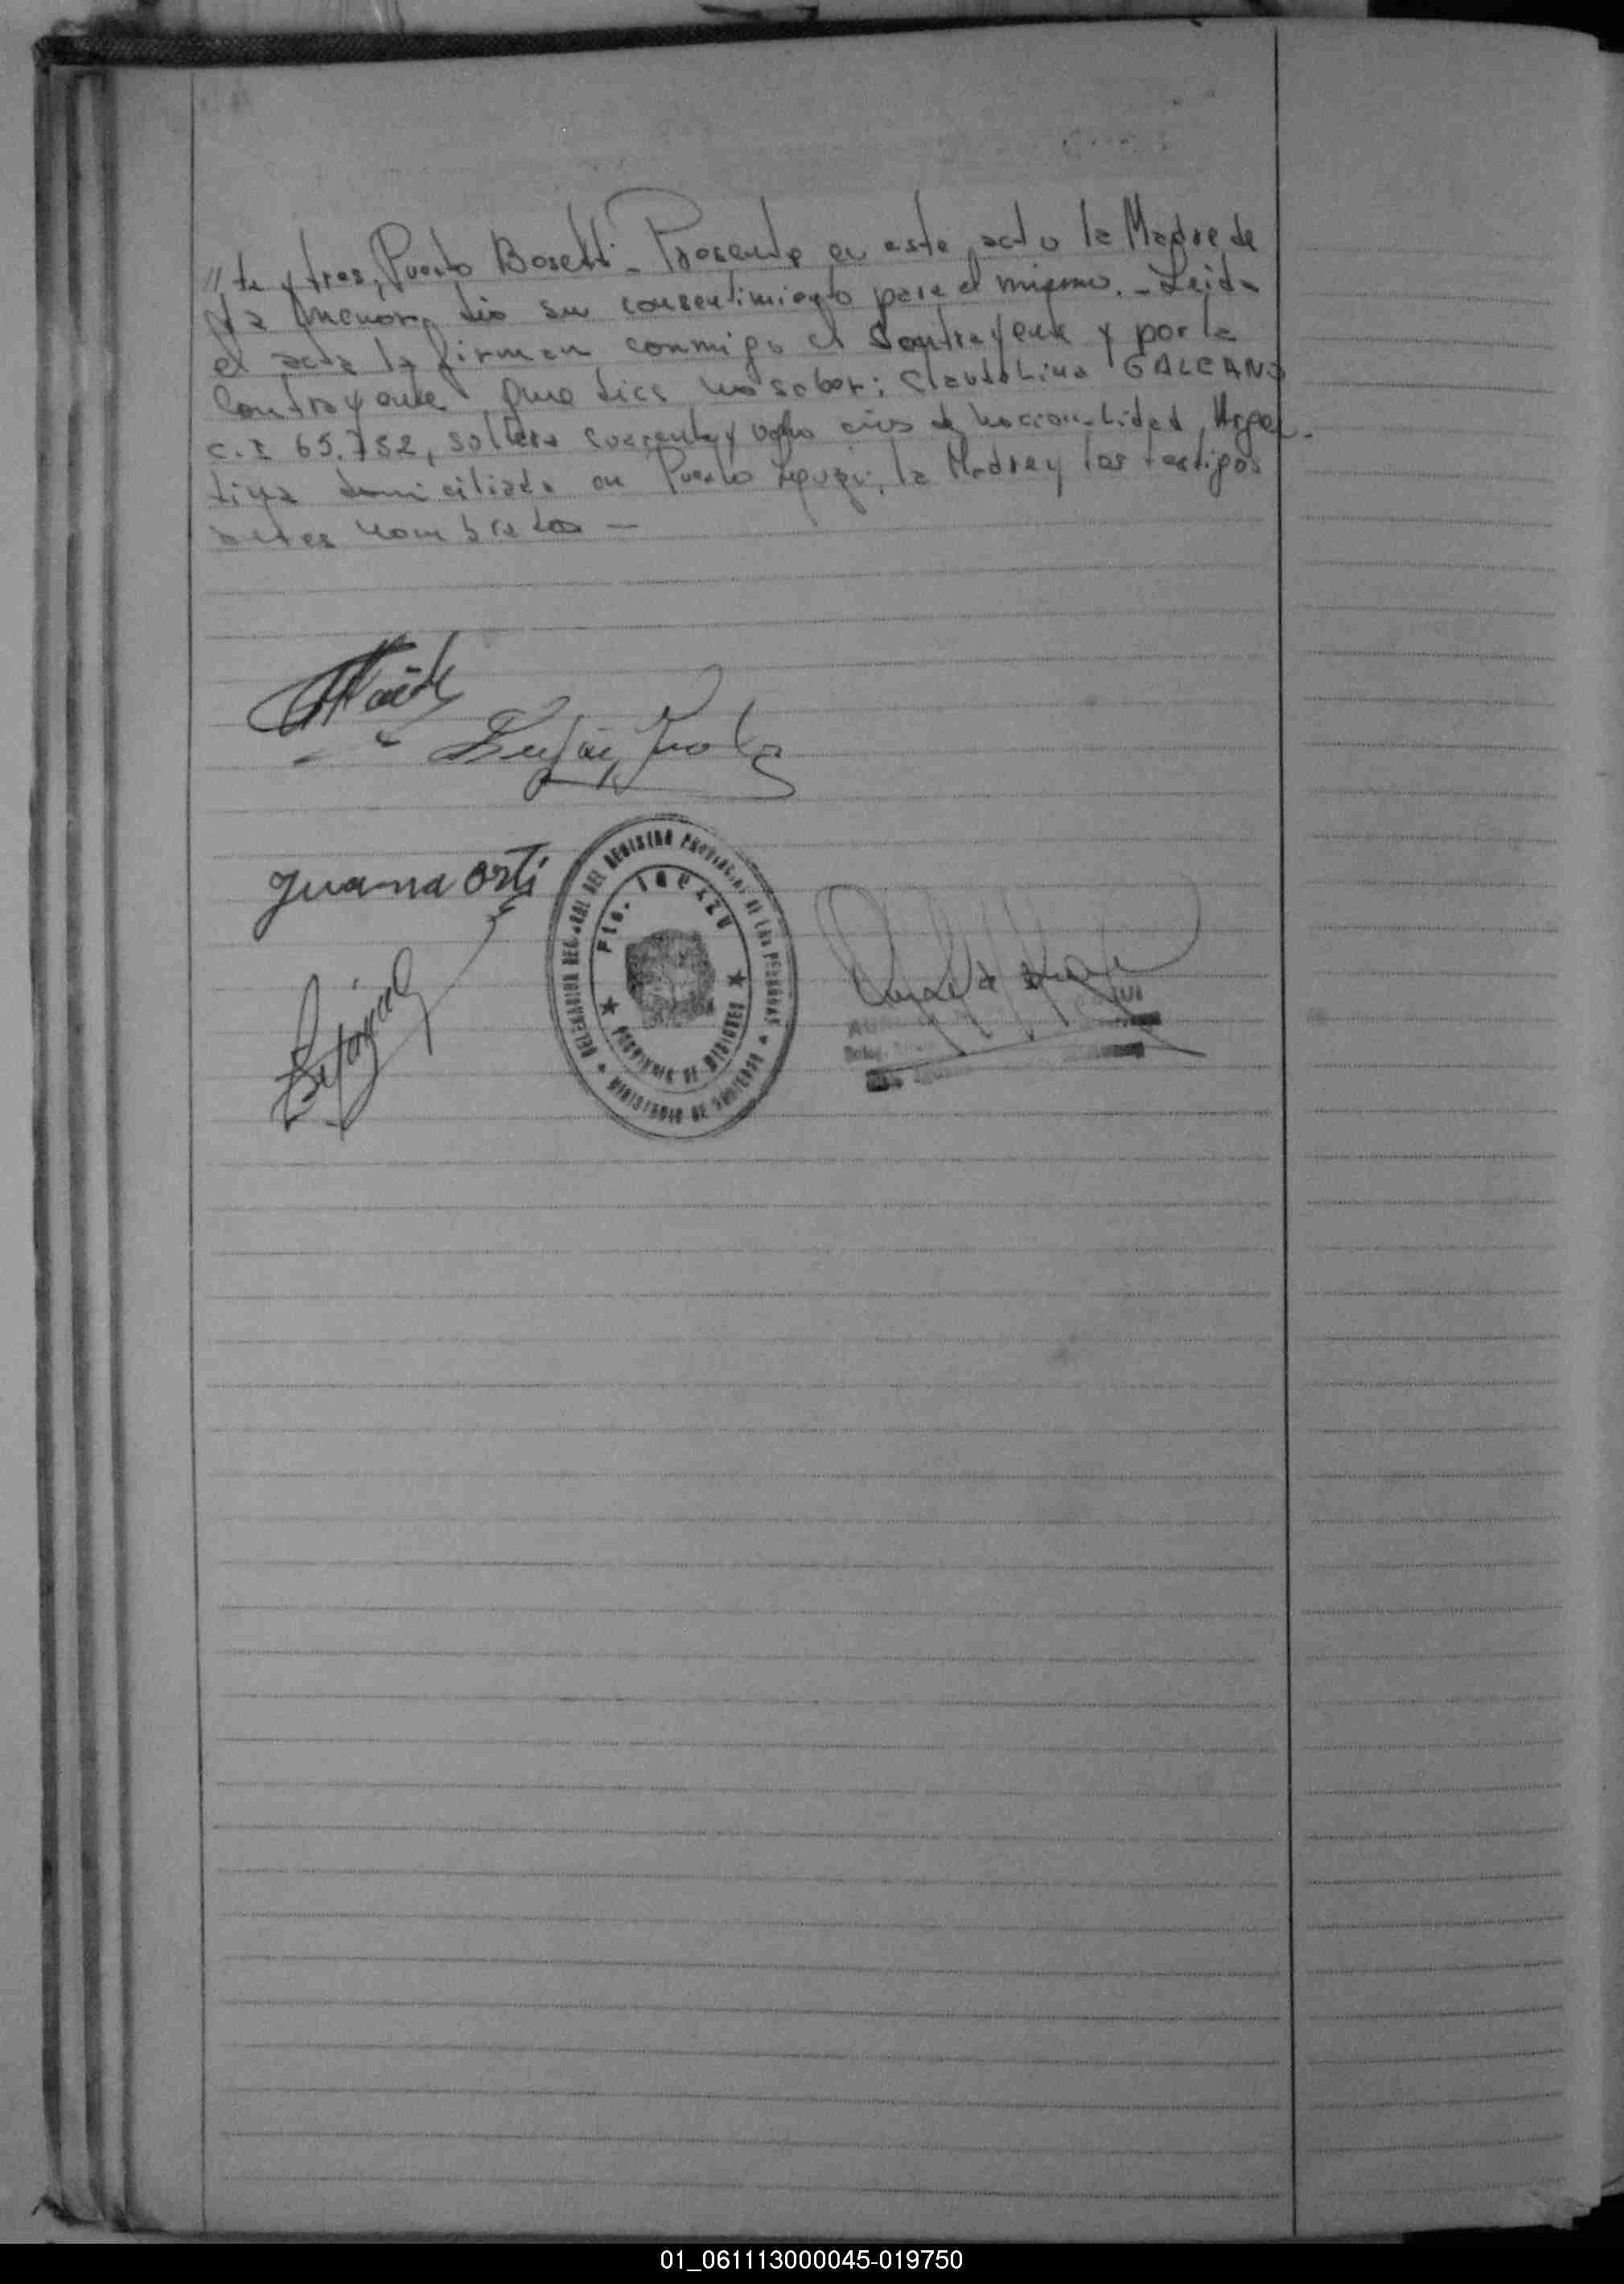 //te y tres, Puerto Bosetti - Presente en este acto la Madre de
la menor, dio su consentimiento para el mismo. - Leida
el acta la firman conmigo el Contrayente y por la
Contrayente que dice no saber: Claudelina GALEANO
C.I 65.752, soltera cuarenta y ocho años de nacionalidad Argen-
tina domiciliada en Puerto Iguazu; la Madre y los testigos
antes nombrados —
Juana Orti
DELEGACION REGIONAL DEL REGISTRO PROVINCIAL DE LAS PERSONAS
Pto. IGUAZU
★ PROVINCIA DE MISIONES ★
★ MINISTERIO DE GOBIERNO ★
01_061113000045-019750